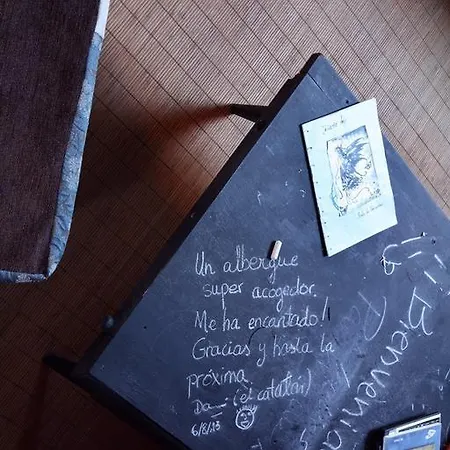 Un albergue
super acogedor.
Me ha encantado!
Gracias y hasta la
próxima
(el catalán)
6/8/13
Bienvenid